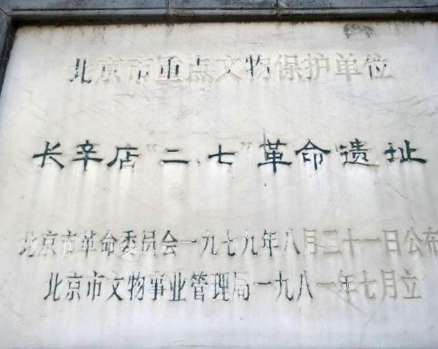 北京市重点文物保护单位
长辛店“二七”革命遗址
北京市革命委员会一九七九年八月二十一日公布
北京市文物事业管理局一九八一年七月立